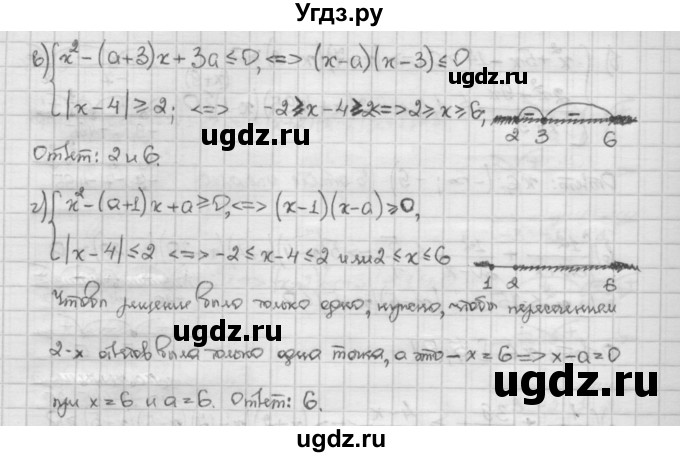 Угдз.ру
в) { x² - (a+3)x + 3a ≤ 0, <=> (x-a)(x-3) ≤ 0
|x-4| ≥ 2; <=> -2 ≥ x-4 ≥ 2 => 2 ≥ x ≥ 6;
2 3 6
ugdz.ru
ugdz.ru
Ответ: 2 и 6.
г) { x² - (a+1)x + a ≥ 0, <=> (x-1)(x-a) ≥ 0,
ugdz.ru
|x-4| ≤ 2 <=> -2 ≤ x-4 ≤ 2 или 2 ≤ x ≤ 6
1 2 6
Чтобы решение было только одно, нужно, чтобы пересечением
ugdz.ru
2-х ответов была только одна точка, а это – x = 6 => x-a = 0
ugdz.ru
при x = 6 и a = 6. Ответ: 6.
ugdz.ru